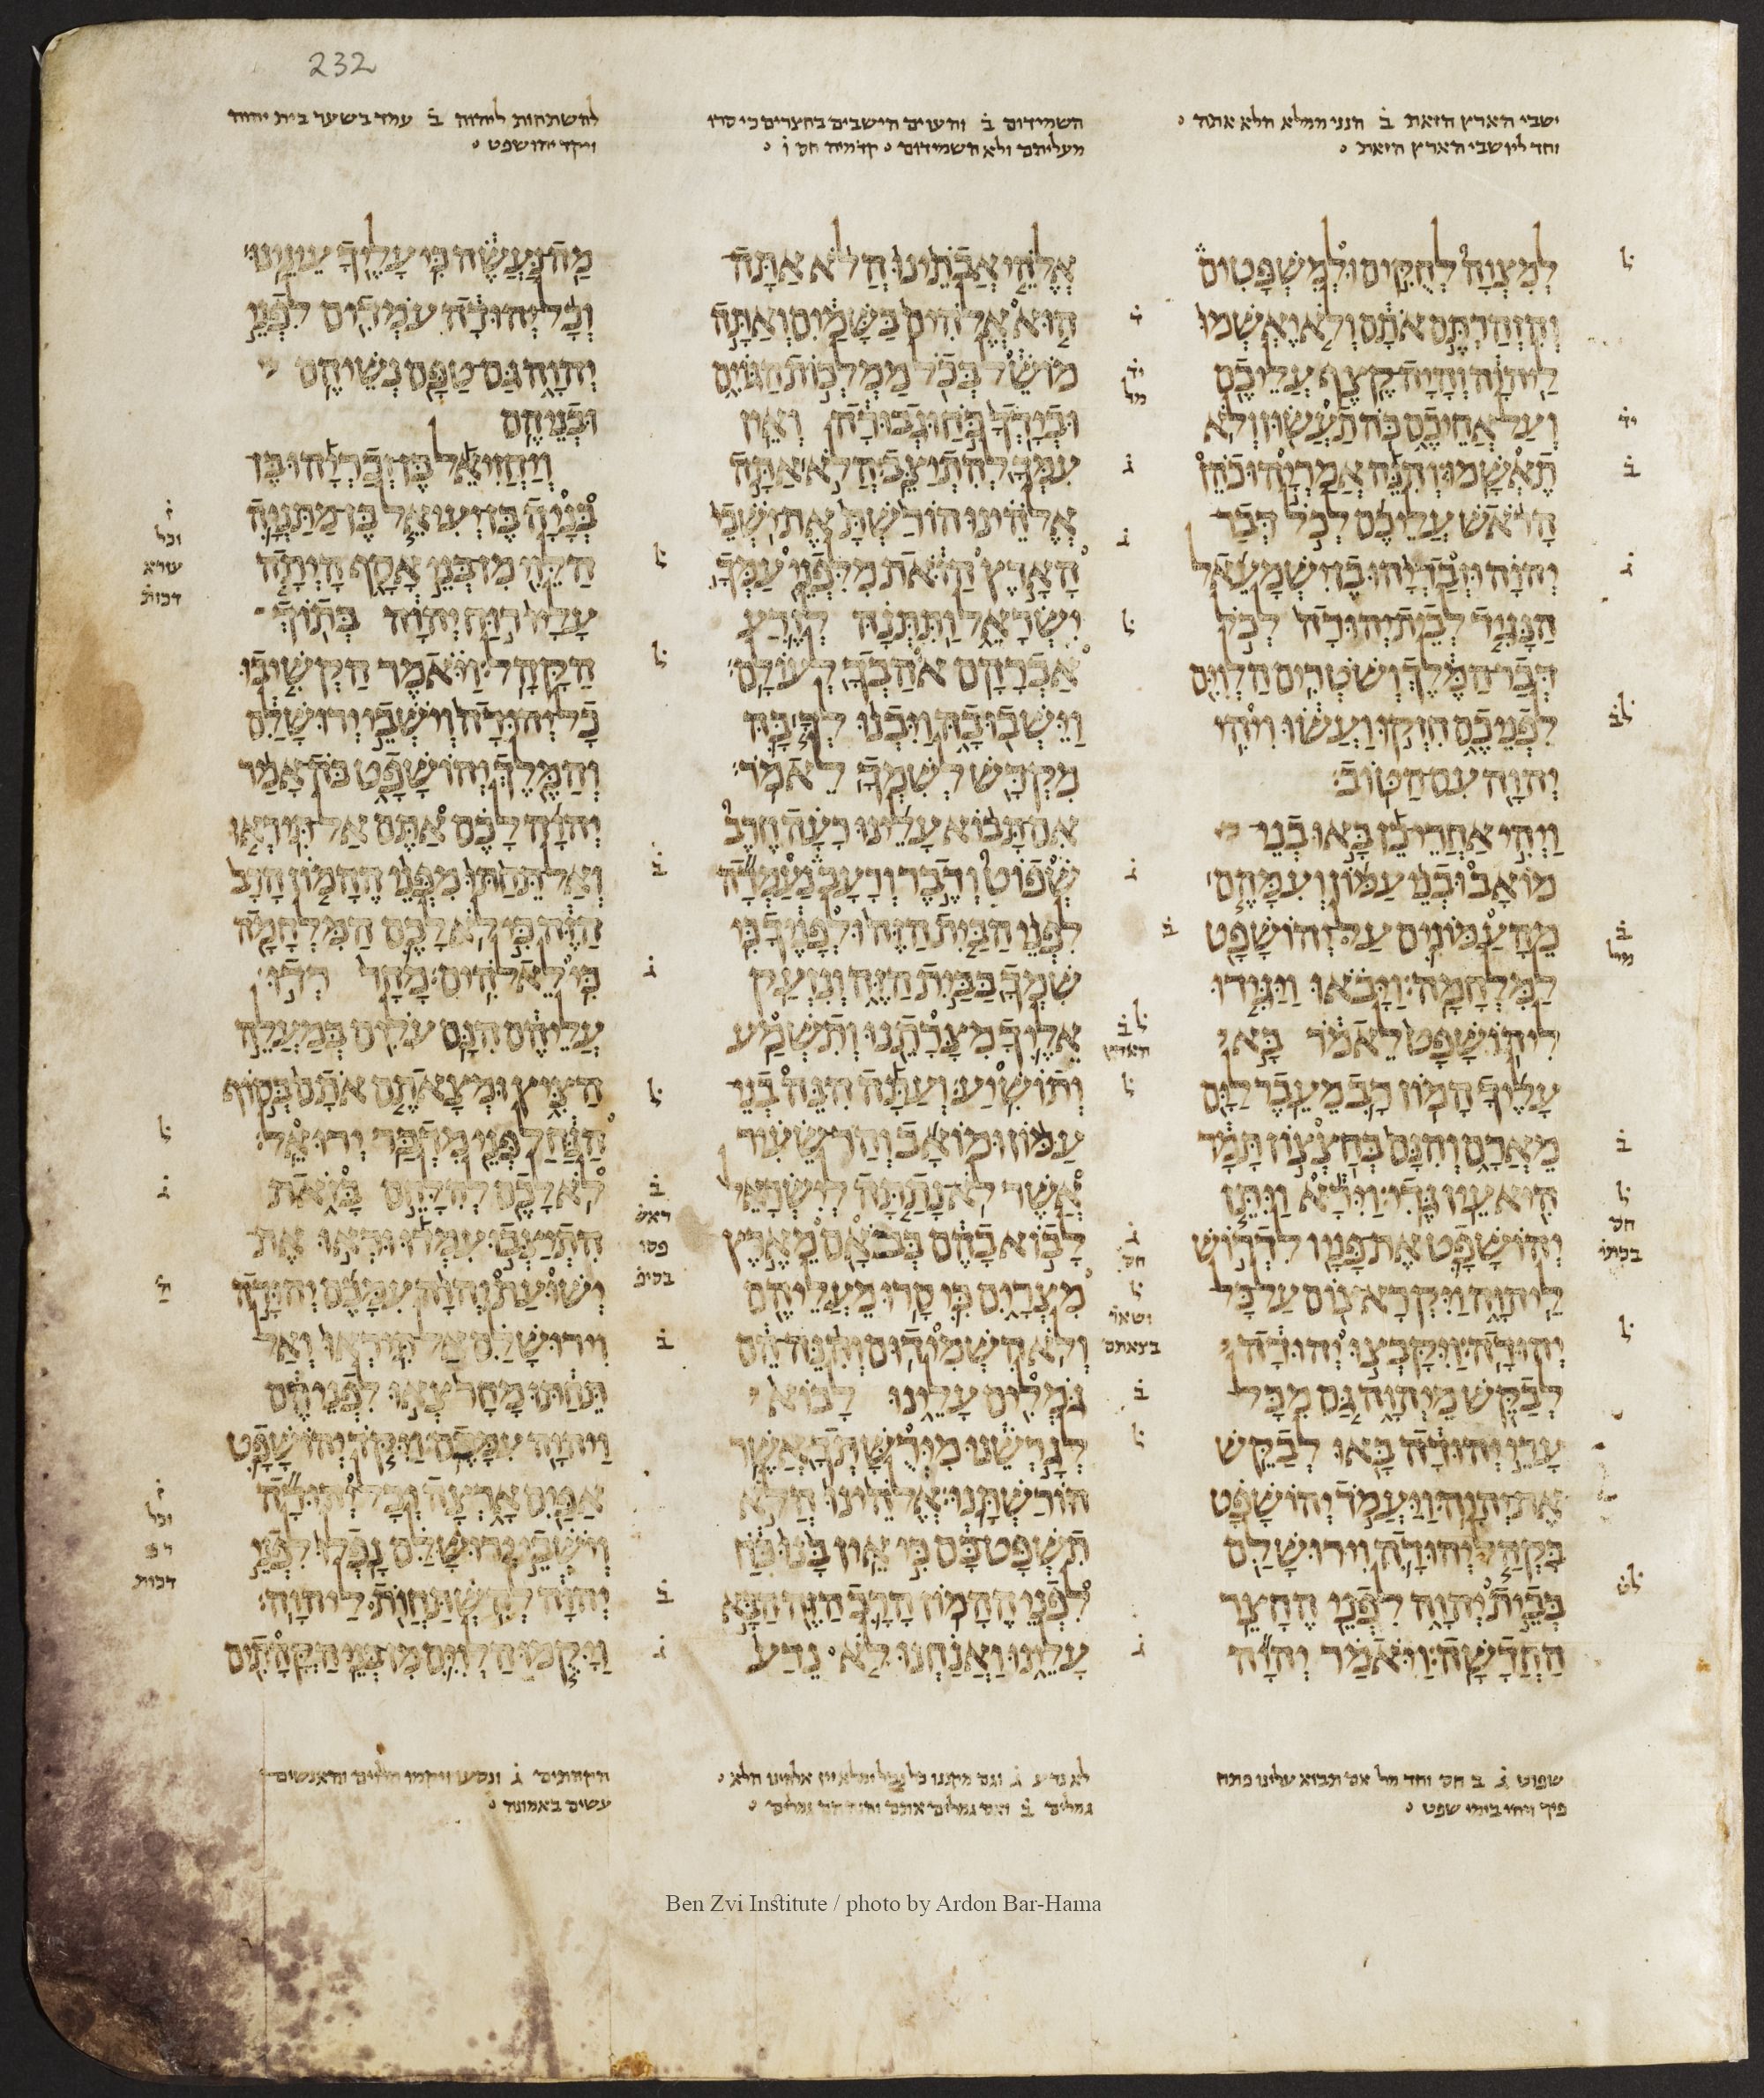 232
ישבי הארץ הזאת ב הנני ממלא הלא אתה
וחד ליושבי הארץ הזאת
השמידום ב והעוים הישבים בחצרים כי סרו
מעליהם ולא השמידום קדמיה חס ו
להשתחות ליהוה ב עמד בשער בית יהוה
ויקד יהושפט
למצוה לחקים ולמשפטים
והזהרתם אתם ולא יאשמו
ליהוה והיה קצף עליכם
ועל אחיכם כה תעשון ולא
תאשמו והנה אמריהו כהן
הראש עליכם לכל דבר
יהוה וזבדיהו בן ישמעאל
הנגיד לבית יהודה לכל
דבר המלך ושטרים הלוים
לפניכם חזקו ועשו ויהי
יהוה עם הטוב
ויהי אחרי כן באו בני
מואב ובני עמון ועמהם
מהעמונים על יהושפט
למלחמה ויבאו ויגידו
ליהושפט לאמר בא
עליך המון רב מעבר לים
מארם והנם בחצצון תמר
היא עין גדי וירא ויתן
יהושפט את פניו לדרוש
ליהוה ויקרא צום על כל
יהודה ויקבצו יהודה
לבקש מיהוה גם מכל
ערי יהודה באו לבקש
את יהוה ויעמד יהושפט
בקהל יהודה וירושלם
בבית יהוה לפני החצר
החדשה ויאמר יהוה
אלהי אבתינו הלא אתה
הוא אלהים בשמים ואתה
מושל בכל ממלכות הגוים
ובידך כח וגבורה ואין
עמך להתיצב הלא אתה
אלהינו הורשת את ישבי
הארץ הזאת מלפני עמך
ישראל ותתנה לזרע
אברהם אהבך לעולם
וישבו בה ויבנו לך בה
מקדש לשמך לאמר
אם תבוא עלינו רעה חרב
שפוט ודבר ורעב נעמדה
לפני הבית הזה ולפניך כי
שמך בבית הזה ונזעק
אליך מצרתנו ותשמע
ותושיע ועתה הנה בני
עמון ומואב והר שעיר
אשר לא נתתה לישראל
לבוא בהם בבאם מארץ
מצרים כי סרו מעליהם
ולא השמידום והנה הם
גמלים עלינו לבוא
לגרשנו מירשתך אשר
הורשתנו אלהינו הלא
תשפט בם כי אין בנו כח
לפני ההמון הרב הזה הבא
עלינו ואנחנו לא נדע
מה נעשה כי עליך עינינו
וכל יהודה עמדים לפני
יהוה גם טפם נשיהם
ובניהם
ויחזיאל בן זכריהו בן
בניה בן יעיאל בן מתניה
הלוי מן בני אסף היתה
עליו רוח יהוה בתוך
הקהל ויאמר הקשיבו
כל יהודה וישבי ירושלם
והמלך יהושפט כה אמר
יהוה לכם אתם אל תיראו
ואל תחתו מפני ההמון הרב
הזה כי לא לכם המלחמה
כי לאלהים מחר רדו
עליהם הנם עלים במעלה
הציץ ומצאתם אתם בסוף
הנחל פני מדבר ירואל
לא לכם להלחם בזאת
התיצבו עמדו וראו את
ישועת יהוה עמכם יהודה
וירושלם אל תיראו ואל
תחתו מחר צאו לפניהם
ויהוה עמכם ויקד יהושפט
אפים ארצה וכל יהודה
וישבי ירושלם נפלו לפני
יהוה להשתחות ליהוה
ויקמו הלוים מן בני הקהתים
שפוט ג ב חס וחד מל אם תבוא עלינו פתח
פיך ויהי בימי שפט
לא נדע ג וגם מקננו אלהינו הלא
גמלים ב ואם גמלים אתם והנה הם גמלים
הקהתים ג ונסעו ויקמו הלוים והאנשים
עשים באמונה
Ben Zvi Institute / photo by Ardon Bar-Hama